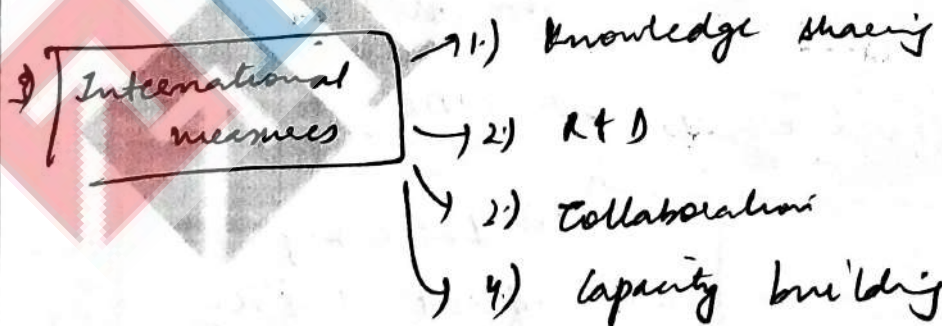 3) International measures
→ 1.) Knowledge sharing
→ 2) R & D
→ 2.) Collaboration
→ 4.) Capacity building